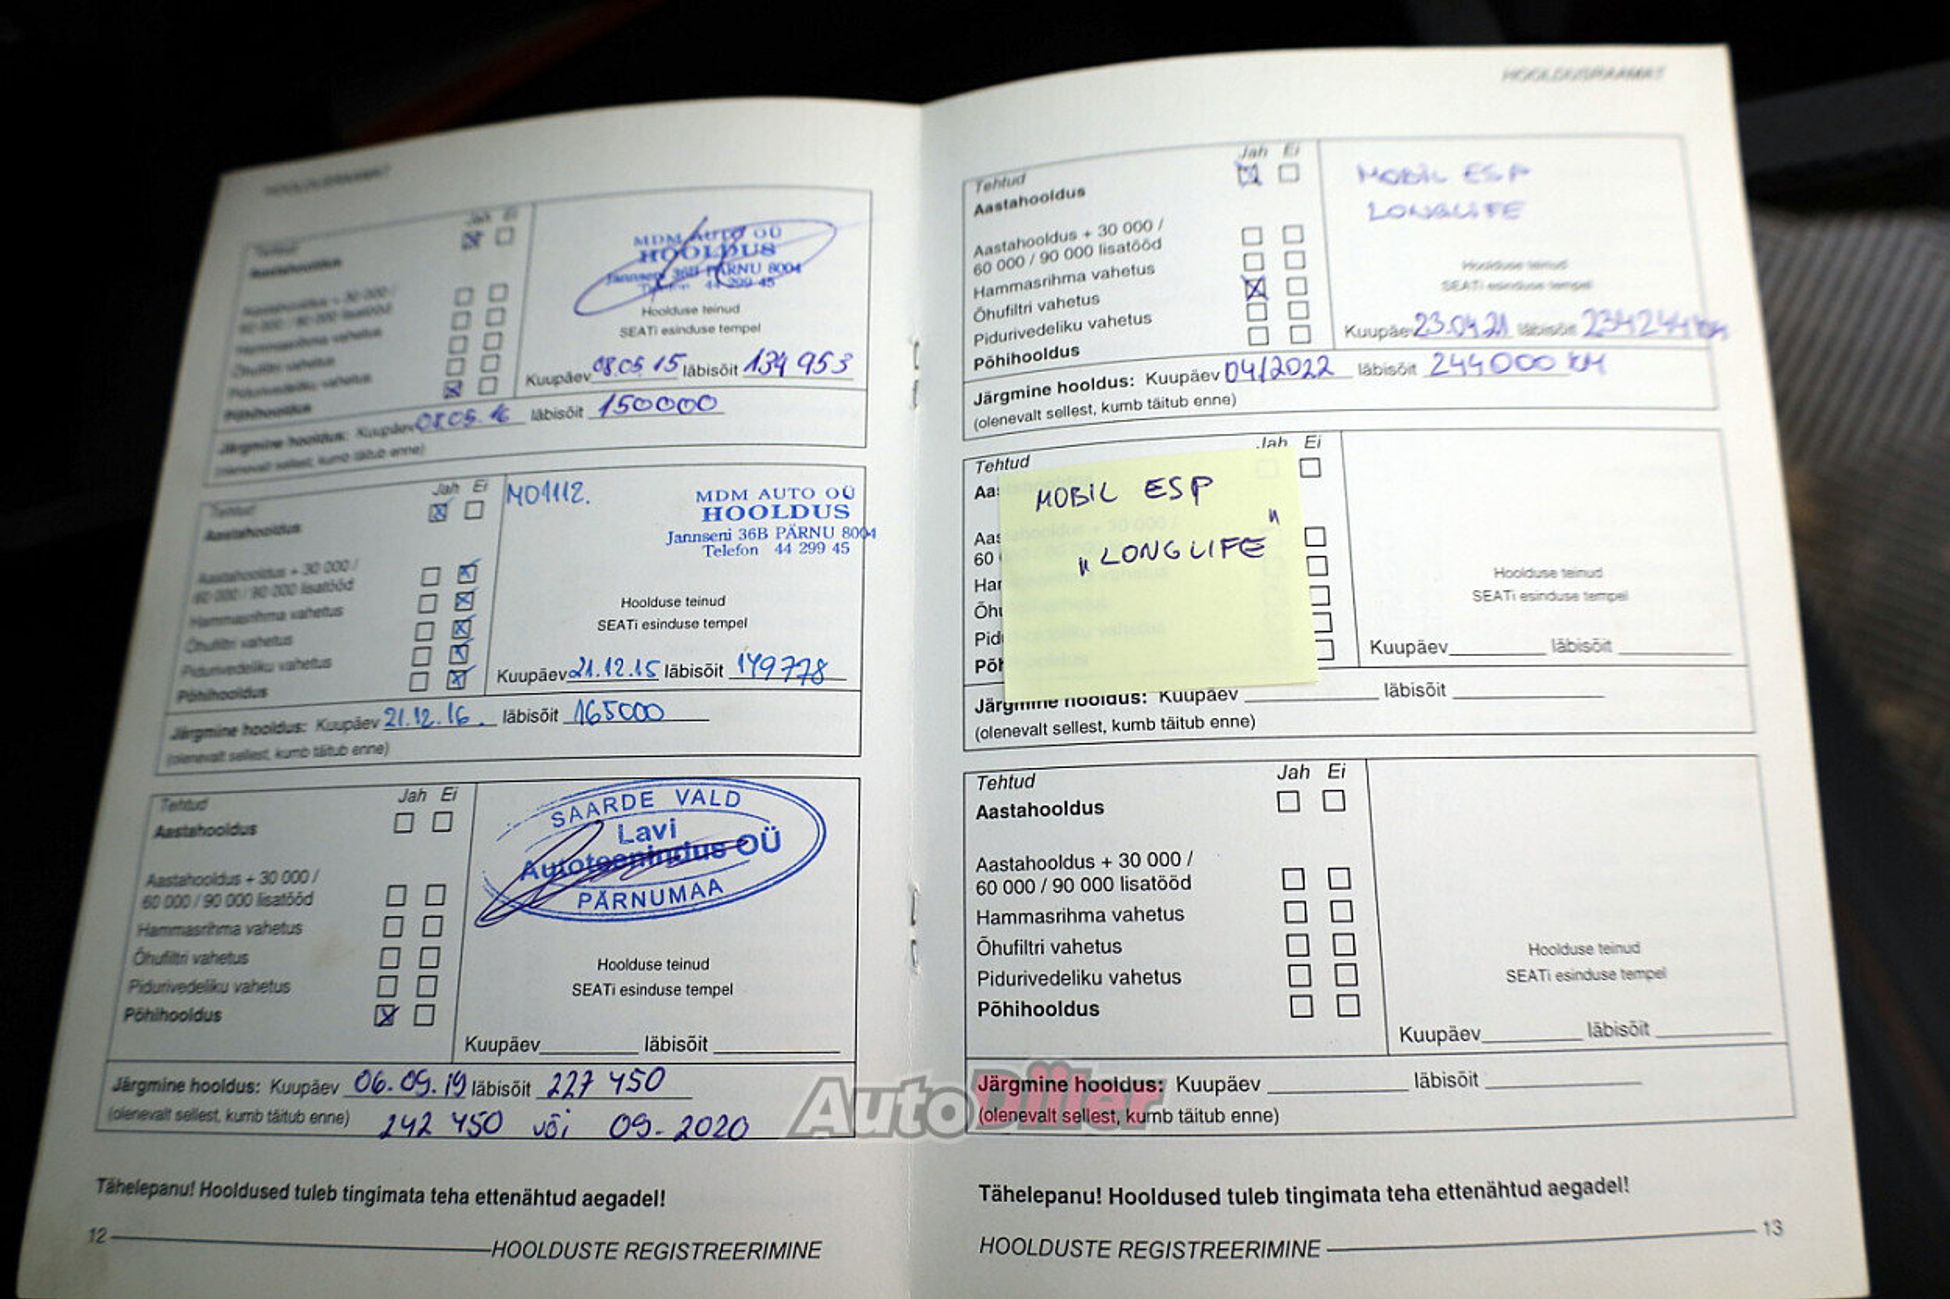 HOOLDUSRAAMAT
Tehtud Jah Ei
Aastahooldus
Aastahooldus + 30 000 /
60 000 / 90 000 lisatööd
Hammasrihma vahetus
Õhufiltri vahetus
Pidurivedeliku vahetus
Põhihooldus
MDM AUTO OÜ
HOOLDUS
Jannseni 36B PÄRNU 8004
Telefon 44 299 45
Hoolduse teinud
SEATi esinduse tempel
Kuupäev 08.05 15 läbisõit 134 953
Järgmine hooldus: Kuupäev 08.05.16 läbisõit 150000
(olenevalt sellest, kumb täitub enne)
Tehtud Jah Ei
Aastahooldus
Aastahooldus + 30 000 /
60 000 / 90 000 lisatööd
Hammasrihma vahetus
Õhufiltri vahetus
Pidurivedeliku vahetus
Põhihooldus
MO1112.
MDM AUTO OÜ
HOOLDUS
Jannseni 36B PÄRNU 8004
Telefon 44 299 45
Hoolduse teinud
SEATi esinduse tempel
Kuupäev 21.12.15 läbisõit 149778
Järgmine hooldus: Kuupäev 21.12.16. läbisõit 165000
(olenevalt sellest, kumb täitub enne)
Tehtud Jah Ei
Aastahooldus
Aastahooldus + 30 000 /
60 000 / 90 000 lisatööd
Hammasrihma vahetus
Õhufiltri vahetus
Pidurivedeliku vahetus
Põhihooldus
SAARDE VALD
Lavi
Autoteenindus OÜ
PÄRNUMAA
Hoolduse teinud
SEATi esinduse tempel
Kuupäev läbisõit
Järgmine hooldus: Kuupäev 06.09.19 läbisõit 227 450
(olenevalt sellest, kumb täitub enne) 242 450 või 09.2020
Tähelepanu! Hooldused tuleb tingimata teha ettenähtud aegadel!
12 HOOLDUSTE REGISTREERIMINE
HOOLDUSRAAMAT
Tehtud Jah Ei
Aastahooldus
Aastahooldus + 30 000 /
60 000 / 90 000 lisatööd
Hammasrihma vahetus
Õhufiltri vahetus
Pidurivedeliku vahetus
Põhihooldus
MOBIL ESP
LONGLIFE
Hoolduse teinud
SEATi esinduse tempel
Kuupäev 23.04.21 läbisõit 234244 km
Järgmine hooldus: Kuupäev 04/2022 läbisõit 244000 KM
(olenevalt sellest, kumb täitub enne)
Tehtud Jah Ei
Aa
Aas
60
Har
Õhu
Pid
Põh
MOBIL ESP
"LONGLIFE"
Hoolduse teinud
SEATi esinduse tempel
Kuupäev läbisõit
Järgmine hooldus: Kuupäev läbisõit
(olenevalt sellest, kumb täitub enne)
Tehtud Jah Ei
Aastahooldus
Aastahooldus + 30 000 /
60 000 / 90 000 lisatööd
Hammasrihma vahetus
Õhufiltri vahetus
Pidurivedeliku vahetus
Põhihooldus
Hoolduse teinud
SEATi esinduse tempel
Kuupäev läbisõit
Järgmine hooldus: Kuupäev läbisõit
(olenevalt sellest, kumb täitub enne)
AutoDiiler
Tähelepanu! Hooldused tuleb tingimata teha ettenähtud aegadel!
HOOLDUSTE REGISTREERIMINE 13